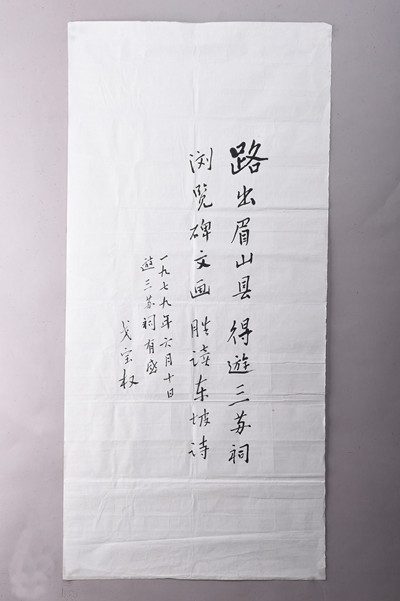 路出眉山县 得遊三苏祠
浏览碑文画 胜读东坡诗
一九七九年六月十日
遊三苏祠有感
戈宝权